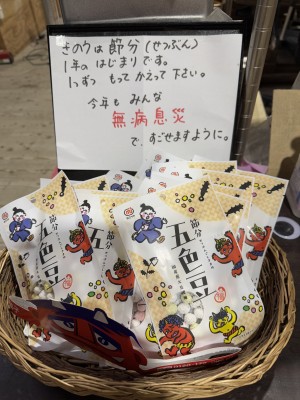 きのうは 節分(せつぶん)
1年の はじまり です。
1つずつ もって かえって 下さい。
今年も みんな
無病息災
で、すごせますように。
節分
五色豆
節分
五色豆